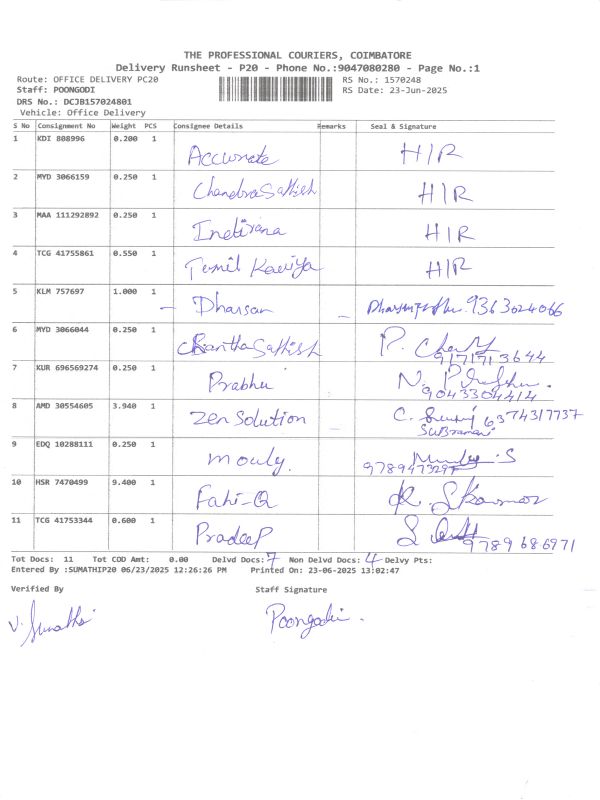 THE PROFESSIONAL COURIERS, COIMBATORE
Delivery Runsheet - P20 - Phone No.:9047080280 - Page No.:1
Route: OFFICE DELIVERY PC20 RS No.: 1570248
Staff: POONGODI RS Date: 23-Jun-2025
DRS No.: DCJB157024801
Vehicle: Office Delivery
S No Consignment No Weight PCS Consignee Details Remarks Seal & Signature
1 KDI 808996 0.200 1 Accurate H/R
2 MYD 3066159 0.250 1 Chandra Sathish H/R
3 MAA 111292892 0.250 1 H/R
4 TCG 41755861 0.550 1 Tamil Kaviya H/R
5 KLM 757697 1.000 1 Dharsan 9363024066
6 MYD 3066044 0.250 1 Sathish P.
9171713644
7 KUR 696569274 0.250 1 Prabhu N. Prabhu.
9043304414
8 AMD 30554605 3.940 1 Zen Solution C. 6374317737
Subramani
9 EDQ 10288111 0.250 1 mouly. S
9789473297
10 HSR 7470499 9.400 1 Fahi-Q
11 TCG 41753344 0.600 1 Pradeep 9789686971
Tot Docs: 11 Tot COD Amt: 0.00 Delvd Docs: 7 Non Delvd Docs: 4 Delvy Pts:
Entered By :SUMATHIP20 06/23/2025 12:26:26 PM Printed On: 23-06-2025 13:02:47
Verified By Staff Signature
V. Sumathi Poongodi.